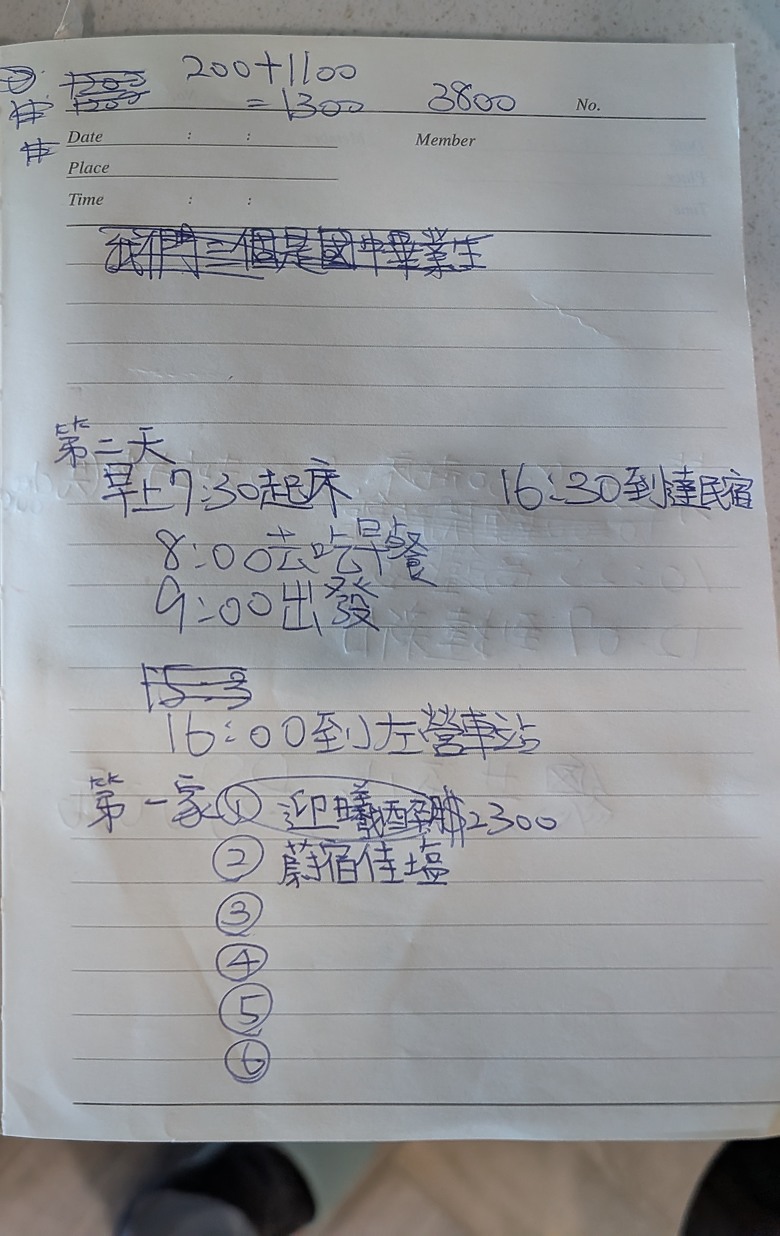 200+1100
=1300 3800 No.
Date : : Member
Place
Time : :
我們三個是國中畢業生
第二天
早上7:30起床 16:30到達民宿
8:00去吃早餐
9:00出發
15:3
16:00到左營車站
第一家① 迎曦 2300
② 蔚宿佳塩
③
④
⑤
⑥